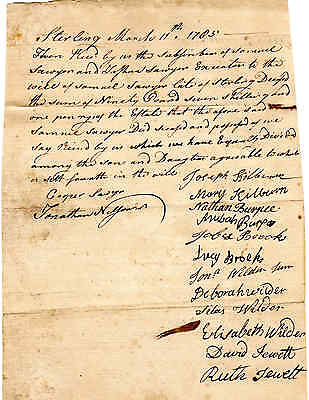 Sterling March 11th 1785
Then Recd by us the Subscribers of Samuel
Sawyer and Sawyer Executor to the
will of Samuel Sawyer late of Sterling Decesd
the sum of Ninety Pound seven shilling and
one penny the Estate that the afore said
Samuel Sawyer Died and of we
say Recd by us which we have Equally Divided
among the son and Daughter agreeable to what
is sett fourth in the will
Joseph Kilburn
Mary Kilburn
Nathan Burpee
Burpee
Brook
Lucy Brook
Jona Wilder Jun
Deborah Wilder
Silas Wilder
Elisabeth Wilder
David Jewett
Ruth Jewett
Sawyer
Jonathan